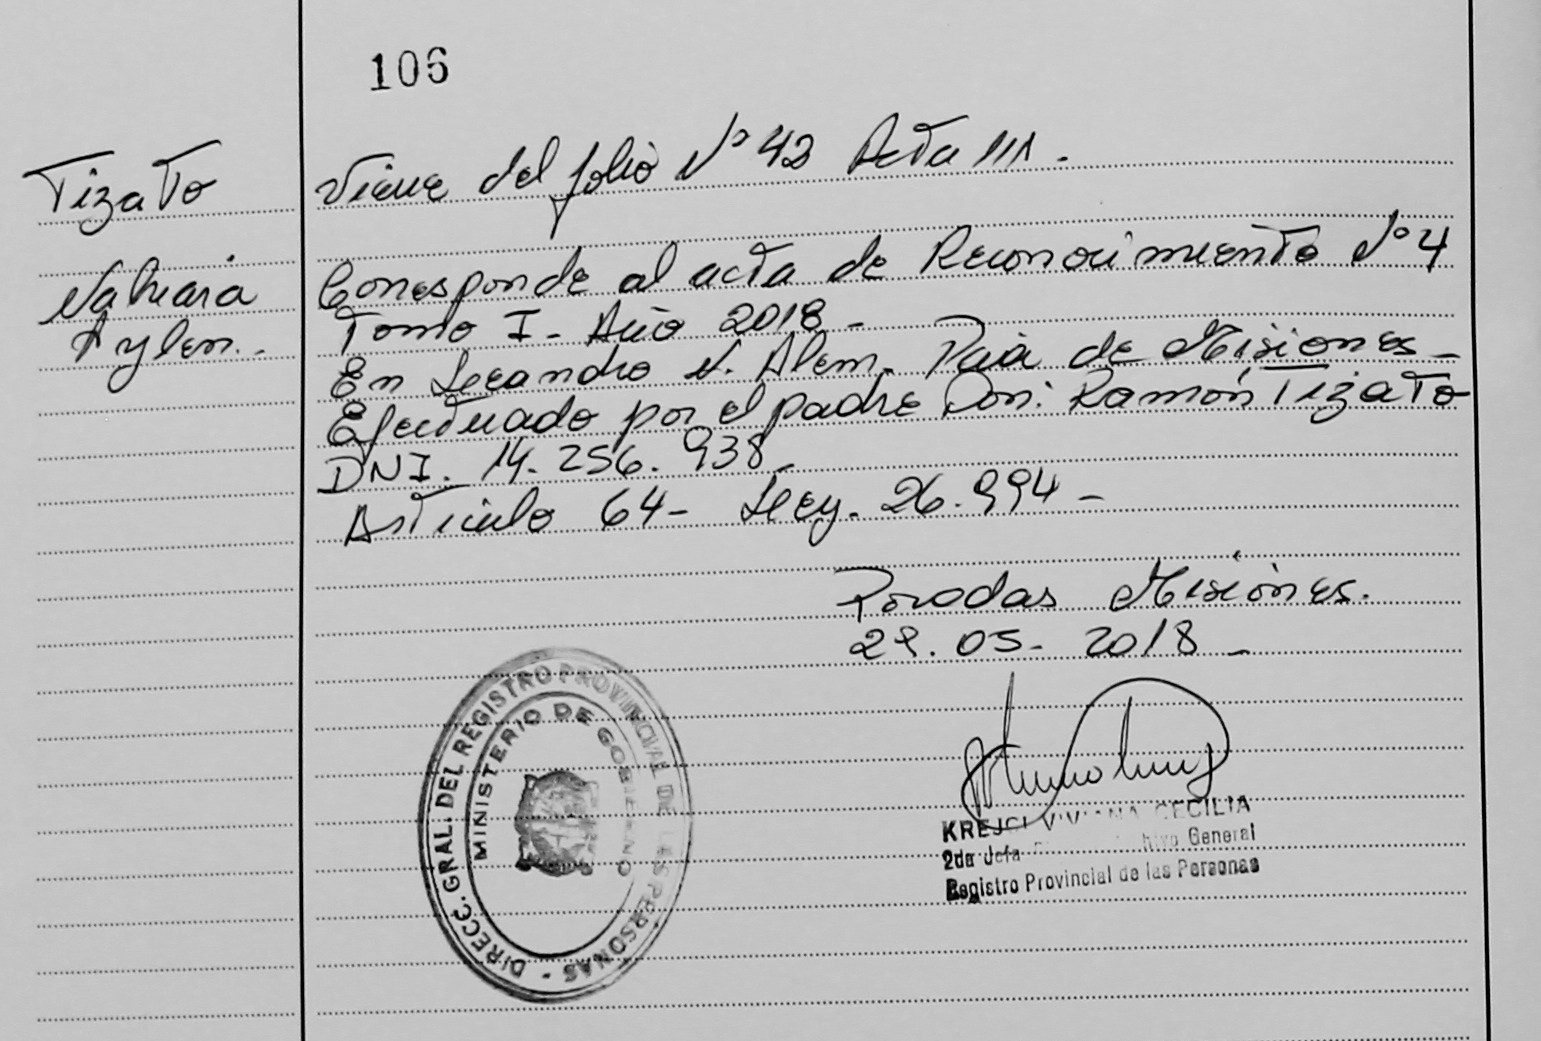 106
Tizato
Nahiara
Aylen.-
Viene del folio N° 42 Acta 111.
Corresponde al acta de Reconocimiento N° 4
Tomo I - Año 2018 -
En Leandro N. Alem. Pcia de Misiones -
Efectuado por el padre Don: Ramón Tizato
DNI. 14.256.938 -
Artículo 64 - Ley. 26.994 -
Posadas Misiones.
29.05 - 2018 -
DIRECC. GRAL. DEL REGISTRO PROVINCIAL DE LAS PERSONAS -
MINISTERIO DE GOBIERNO
KREJCI VIVIANA CECILIA
2da Jefa General
Registro Provincial de las Personas